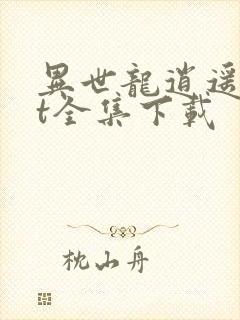 異世龍逍遥
t全集下載
枕山舟